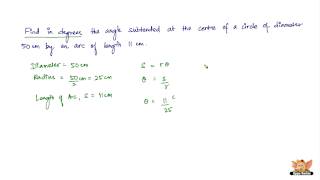 Find in degrees the angle subtended at the centre of a circle of diameter
50 cm by an arc of length 11 cm.
Diameter = 50cm
Radius = 50cm/2 = 25cm
Length of Arc, S = 11cm
S = rθ
θ = S/r
θ = 11/25 ᶜ